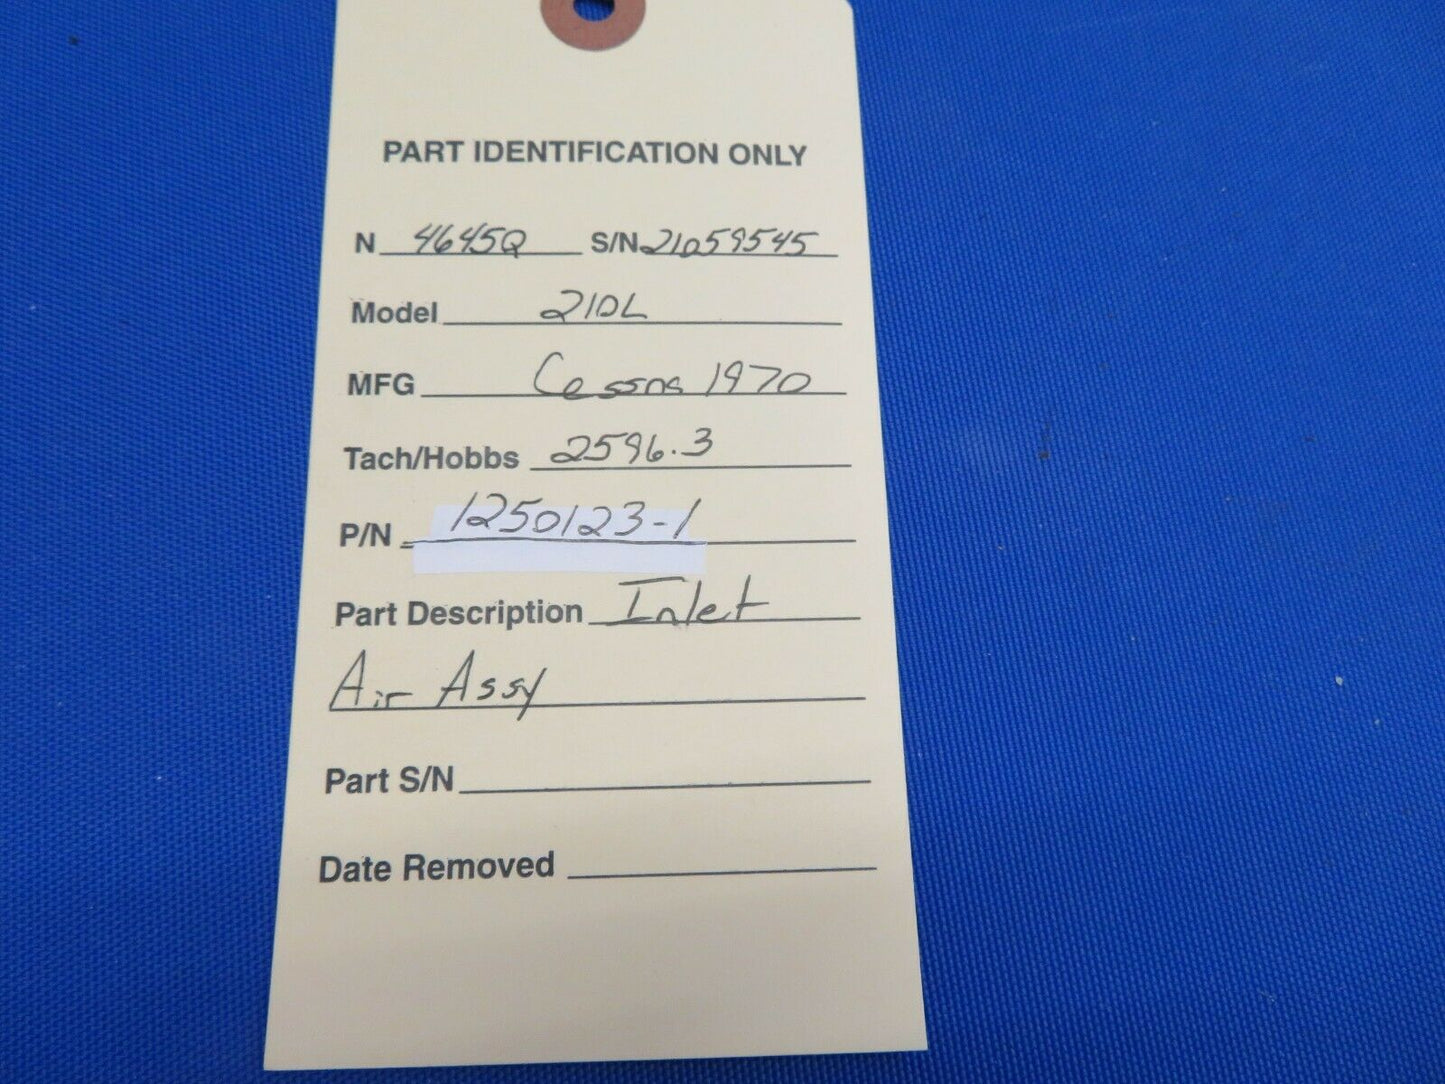 PART IDENTIFICATION ONLY
N 4645Q S/N 21059545
Model 210L
MFG Cessna 1970
Tach/Hobbs 2596.3
P/N 1250123-1
Part Description Inlet
Air Assy
Part S/N
Date Removed